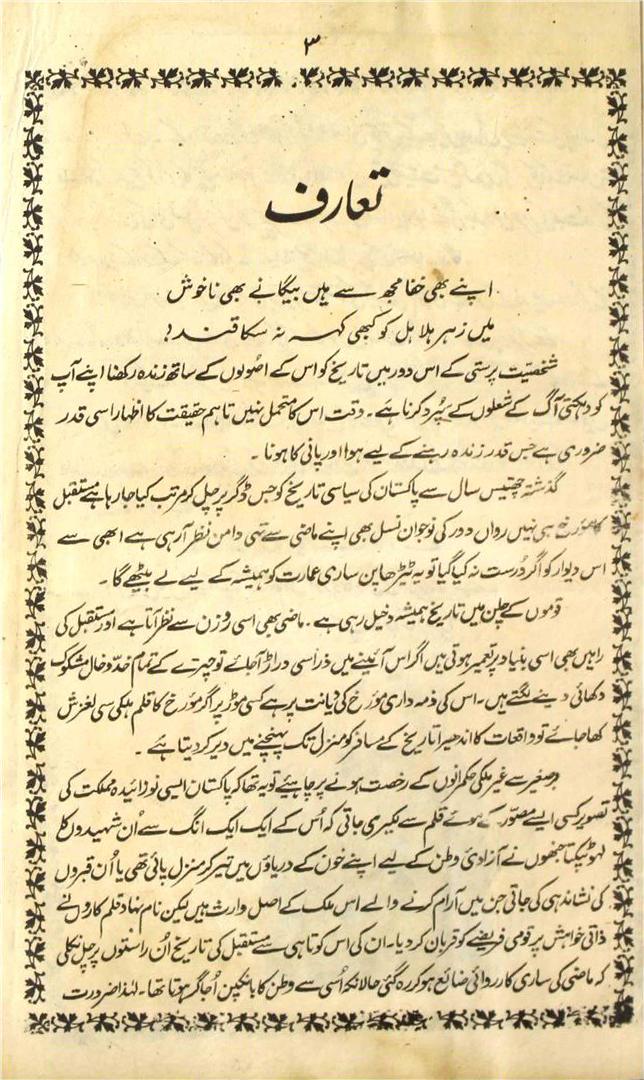 ۳
تعارف
اپنے بھی خفا مجھ سے ہیں بیگانے بھی ناخوش
میں زہر ہلاہل کو کبھی کہہ نہ سکا قند!
شخصیّت پرستی کے اس دور میں تاریخ کو اس کے اصُولوں کے ساتھ زندہ رکھنا اپنے آپ
کو دہکتی آگ کے شعلوں کے سِپُرد کرنا ہے۔ وقت اس کا متحمل نہیں تاہم حقیقت کا اظہار اسی قدر
ضروری ہے جس قدر زندہ رہنے کے لیے ہوا اور پانی کا ہونا ۔
گذشتہ چھتیس سال سے پاکستان کی سیاسی تاریخ کو جس ڈگر پر چل کر مرتب کیا جا رہا ہے مستقبل
کا مورّخ ہی نہیں رواں دور کی نوجوان نسل بھی اپنے ماضی سے تہی دامن نظر آ رہی ہے ابھی سے
اس دیوار کو اگر دُرست نہ کیا گیا تو یہ ٹیڑھا پن ساری عمارت کو ہمیشہ کے لیے لے بیٹھے گا ۔
قوموں کے چلن میں تاریخ ہمیشہ دخیل رہی ہے ۔ ماضی بھی اسی روزن سے نظر آتا ہے اور مستقبل کی
راہیں بھی اسی بنیاد پر تعمیر ہوتی ہیں اگر اس آئینے میں ذرا سی دراڑ آ جائے تو چہرے کے تمام خدّ و خال مشکوک
دکھائی دینے لگتے ہیں ۔ اس کی ذمہ داری مؤرخ کی دیانت پر ہے کسی موڑ پر اگر مؤرخ کا قلم ہلکی سی لغزش
کھا جائے تو واقعات کا اندھیرا تاریخ کے مسافر کو منزل تک پہنچنے میں دیر کر دیتا ہے ۔
برصغیر سے غیر ملکی حکمرانوں کے رخصت ہونے پر چاہیئے تو یہ تھا کہ پاکستان ایسی نوزائیدہ مملکت کی
تصویر کسی ایسے مصوّر کے ہوئے قلم سے لکیری جاتی کہ اُس کے ایک ایک انگ سے اُن شہیدوں کا
لہو ٹپکتا جنھوں نے آزادیٔ وطن کے لیے اپنے خون کے دریاؤں میں تیر کر منزل پائی تھی یا اُن قبروں
کی نشاندہی کی جاتی جن میں آرام کرنے والے اس ملک کے اصل وارث ہیں لیکن نام نہاد قلم کاروں نے
ذاتی خواہش پر قومی فریضے کو قربان کر دیا۔ ان کی اس کوتاہی سے مستقبل کی تاریخ اُن راستوں پر چل نکلی
کہ ماضی کی ساری کارروائی ضائع ہو کر رہ گئی حالانکہ اُسی سے وطن کا بانکپن اُجاگر ہوتا تھا ۔ لہٰذا ضرورت